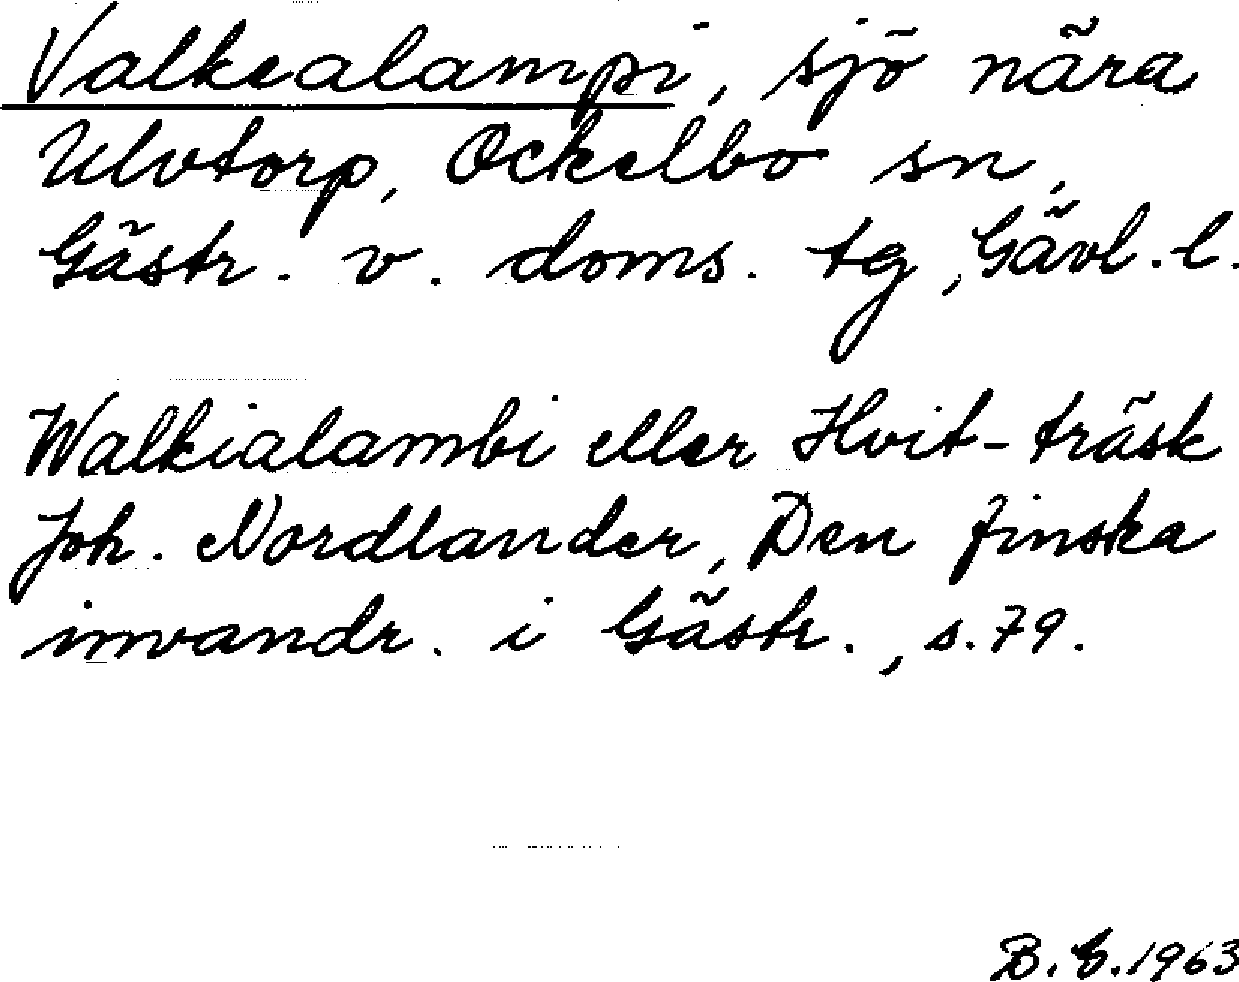 Valkealampi, sjö nära
Ulvtorp, Ockelbo sn,
Gästr. v. doms. tg, Gävl. l.
Walkialambi eller Hvit-träsk
Joh. Nordlander, Den finska
invandr. i Gästr., s. 79.
B. E. 1963